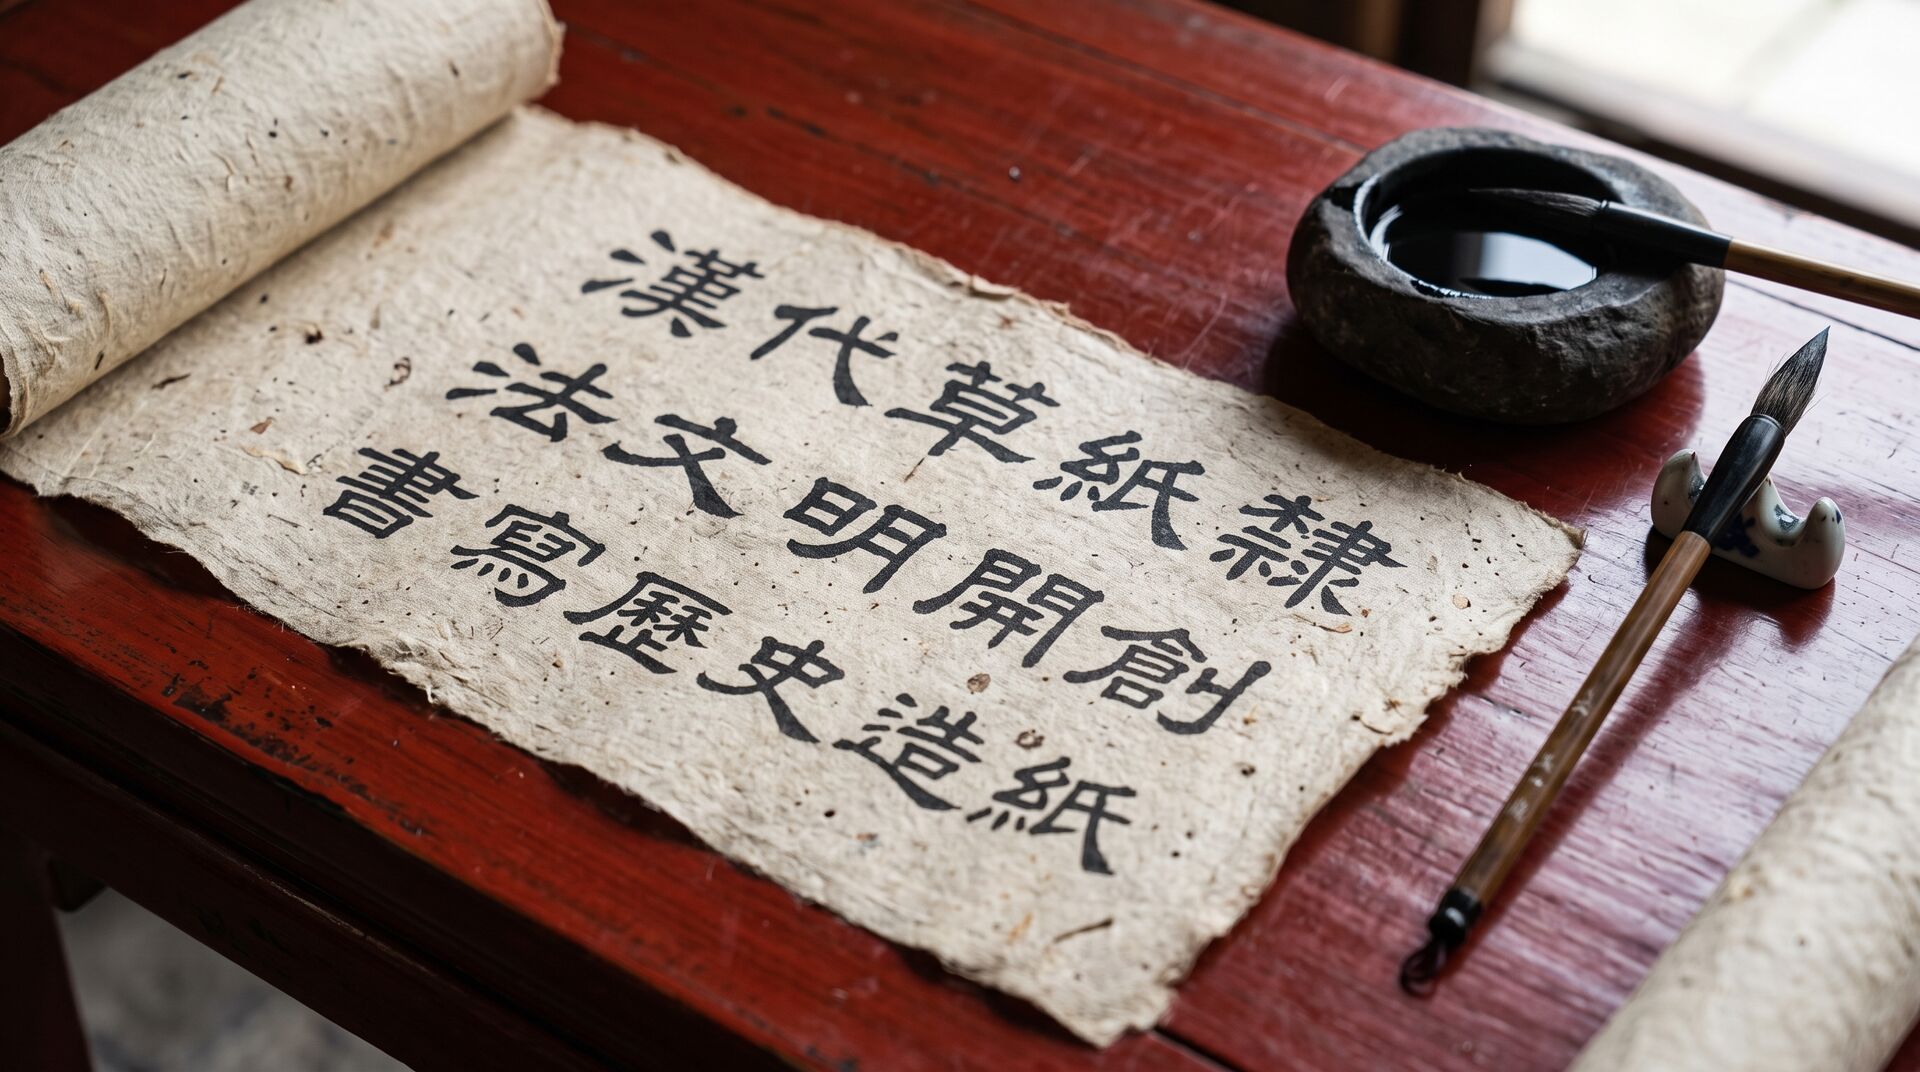 漢代草紙隸
法文明開創
書寫歷史造紙